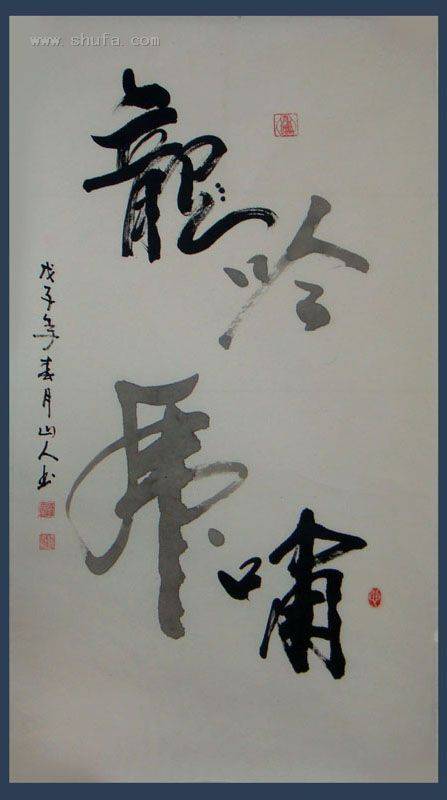 www.shufa.com
龍吟
虎嘯
戊子年春月山人书